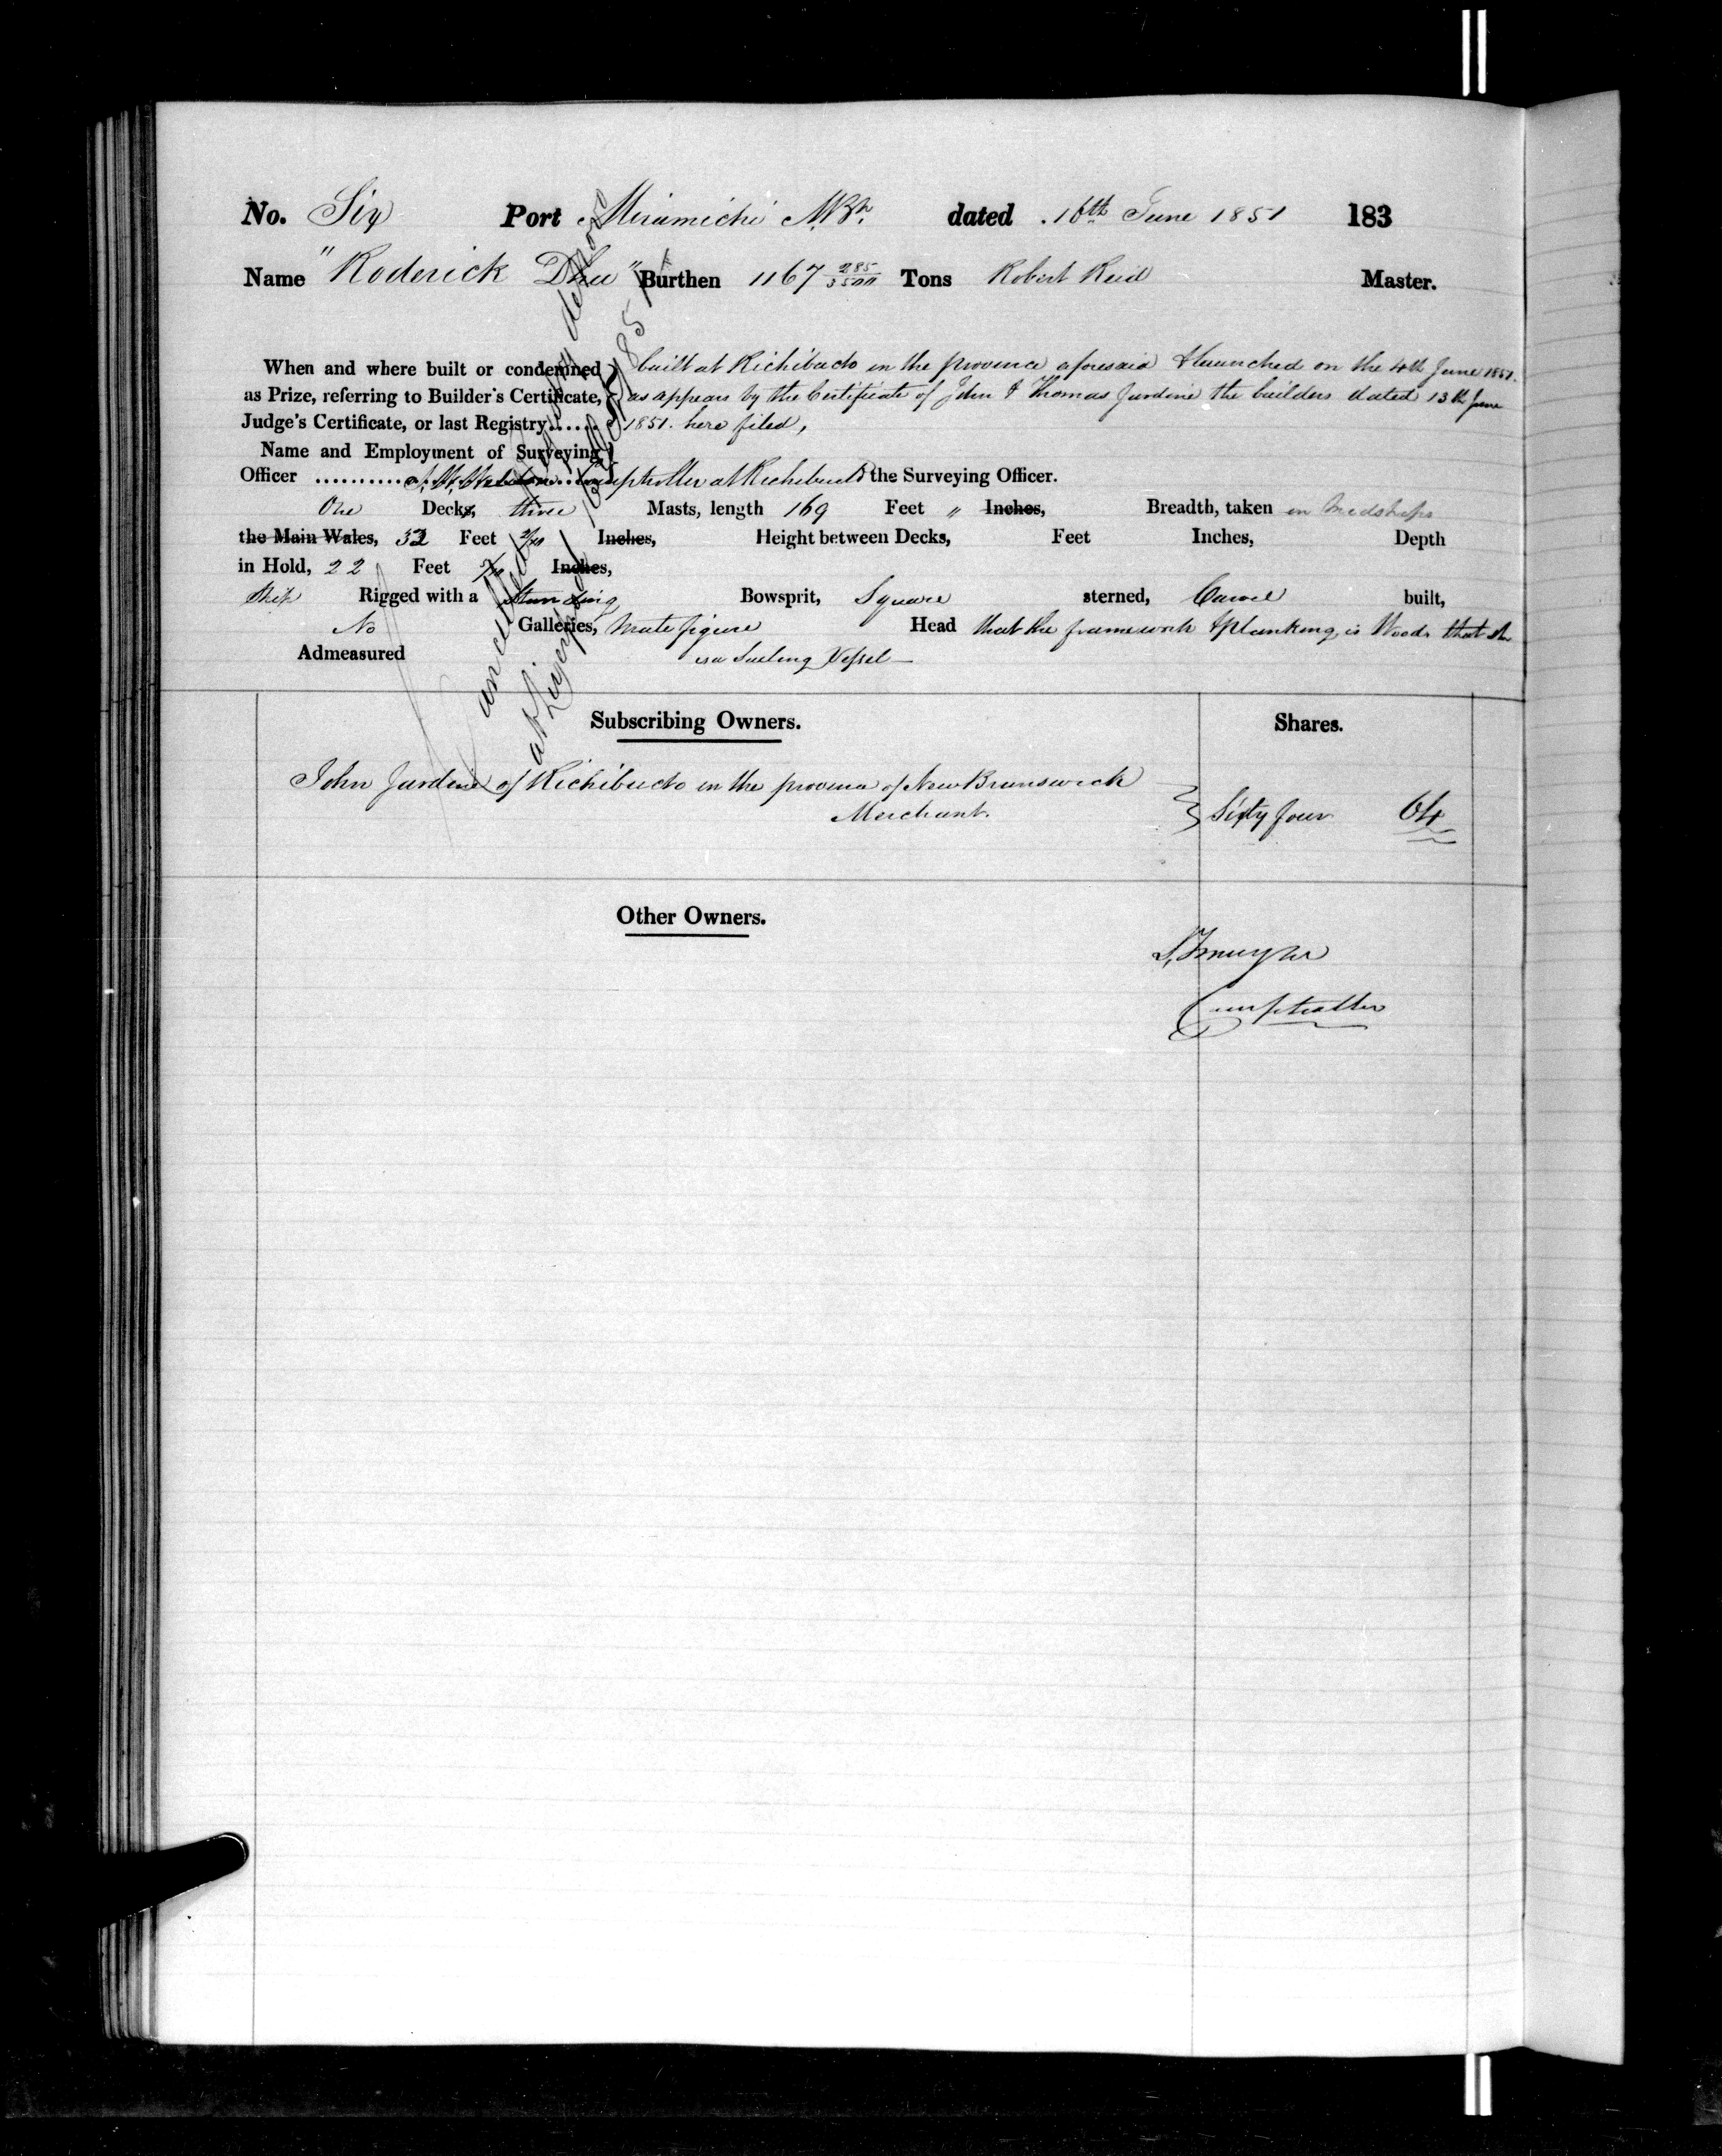 No. Six Port Miramichi N.Bk. dated 16th June 1851 183
Name "Roderick Dhu" Burthen 1167 285/3500 Tons Robert Reid Master.
When and where built or condemned built at Richibucto in the province aforesaid & launched on the 4th June 1851.
as Prize, referring to Builder's Certificate, as appears by the Certificate of John & Thomas Jardine the builders dated 13th June
Judge's Certificate, or last Registry...... 1851. here filed,
Name and Employment of Surveying
Officer .......... J. W. Weldon Comptroller at Richibucto the Surveying Officer.
One Decks, three Masts, length 169 Feet " Inches, Breadth, taken in Midships
the Main Wales, 32 Feet 2/10 Inches, Height between Decks, Feet Inches, Depth
in Hold, 22 Feet Inches,
Ship Rigged with a Standing Bowsprit, Square sterned, Carvel built,
No Galleries, Male figure Head that the framework & planking is Wood that she
Admeasured is a Sailing Vessel
Cancelled
at Liverpool
Subscribing Owners. Shares.
John Jardine of Richibucto in the province of New Brunswick
Merchant. Sixty four 64
Other Owners.
Comptroller